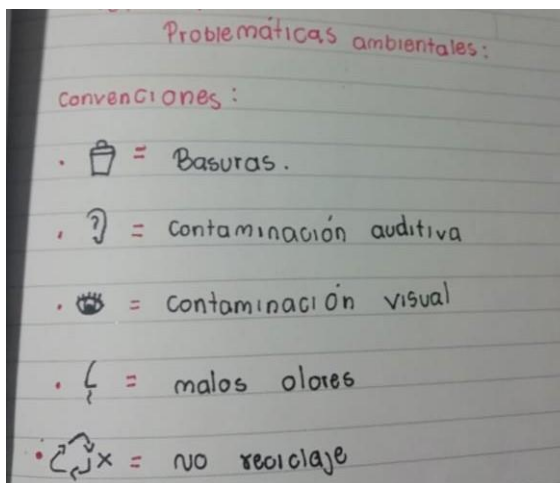 Problemáticas ambientales:
convenciones:
· = Basuras.
· = contaminación auditiva
· = contaminación visual
· = malos olores
· x = no reciclaje